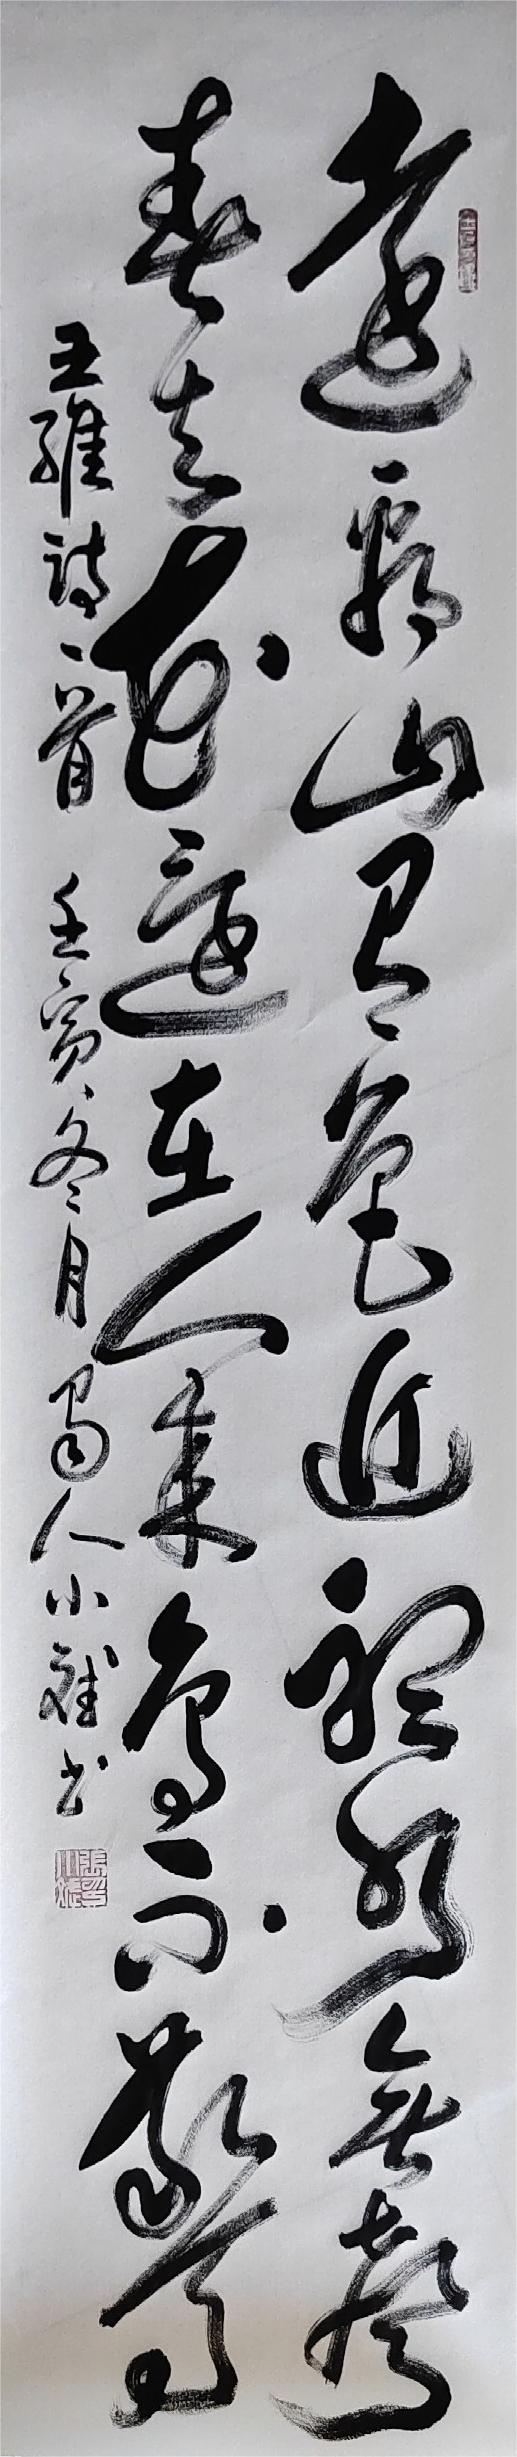 遠看山有色近聽水無聲
春去花還在人來鳥不驚
王維詩一首 壬寅冬月蜀人小書